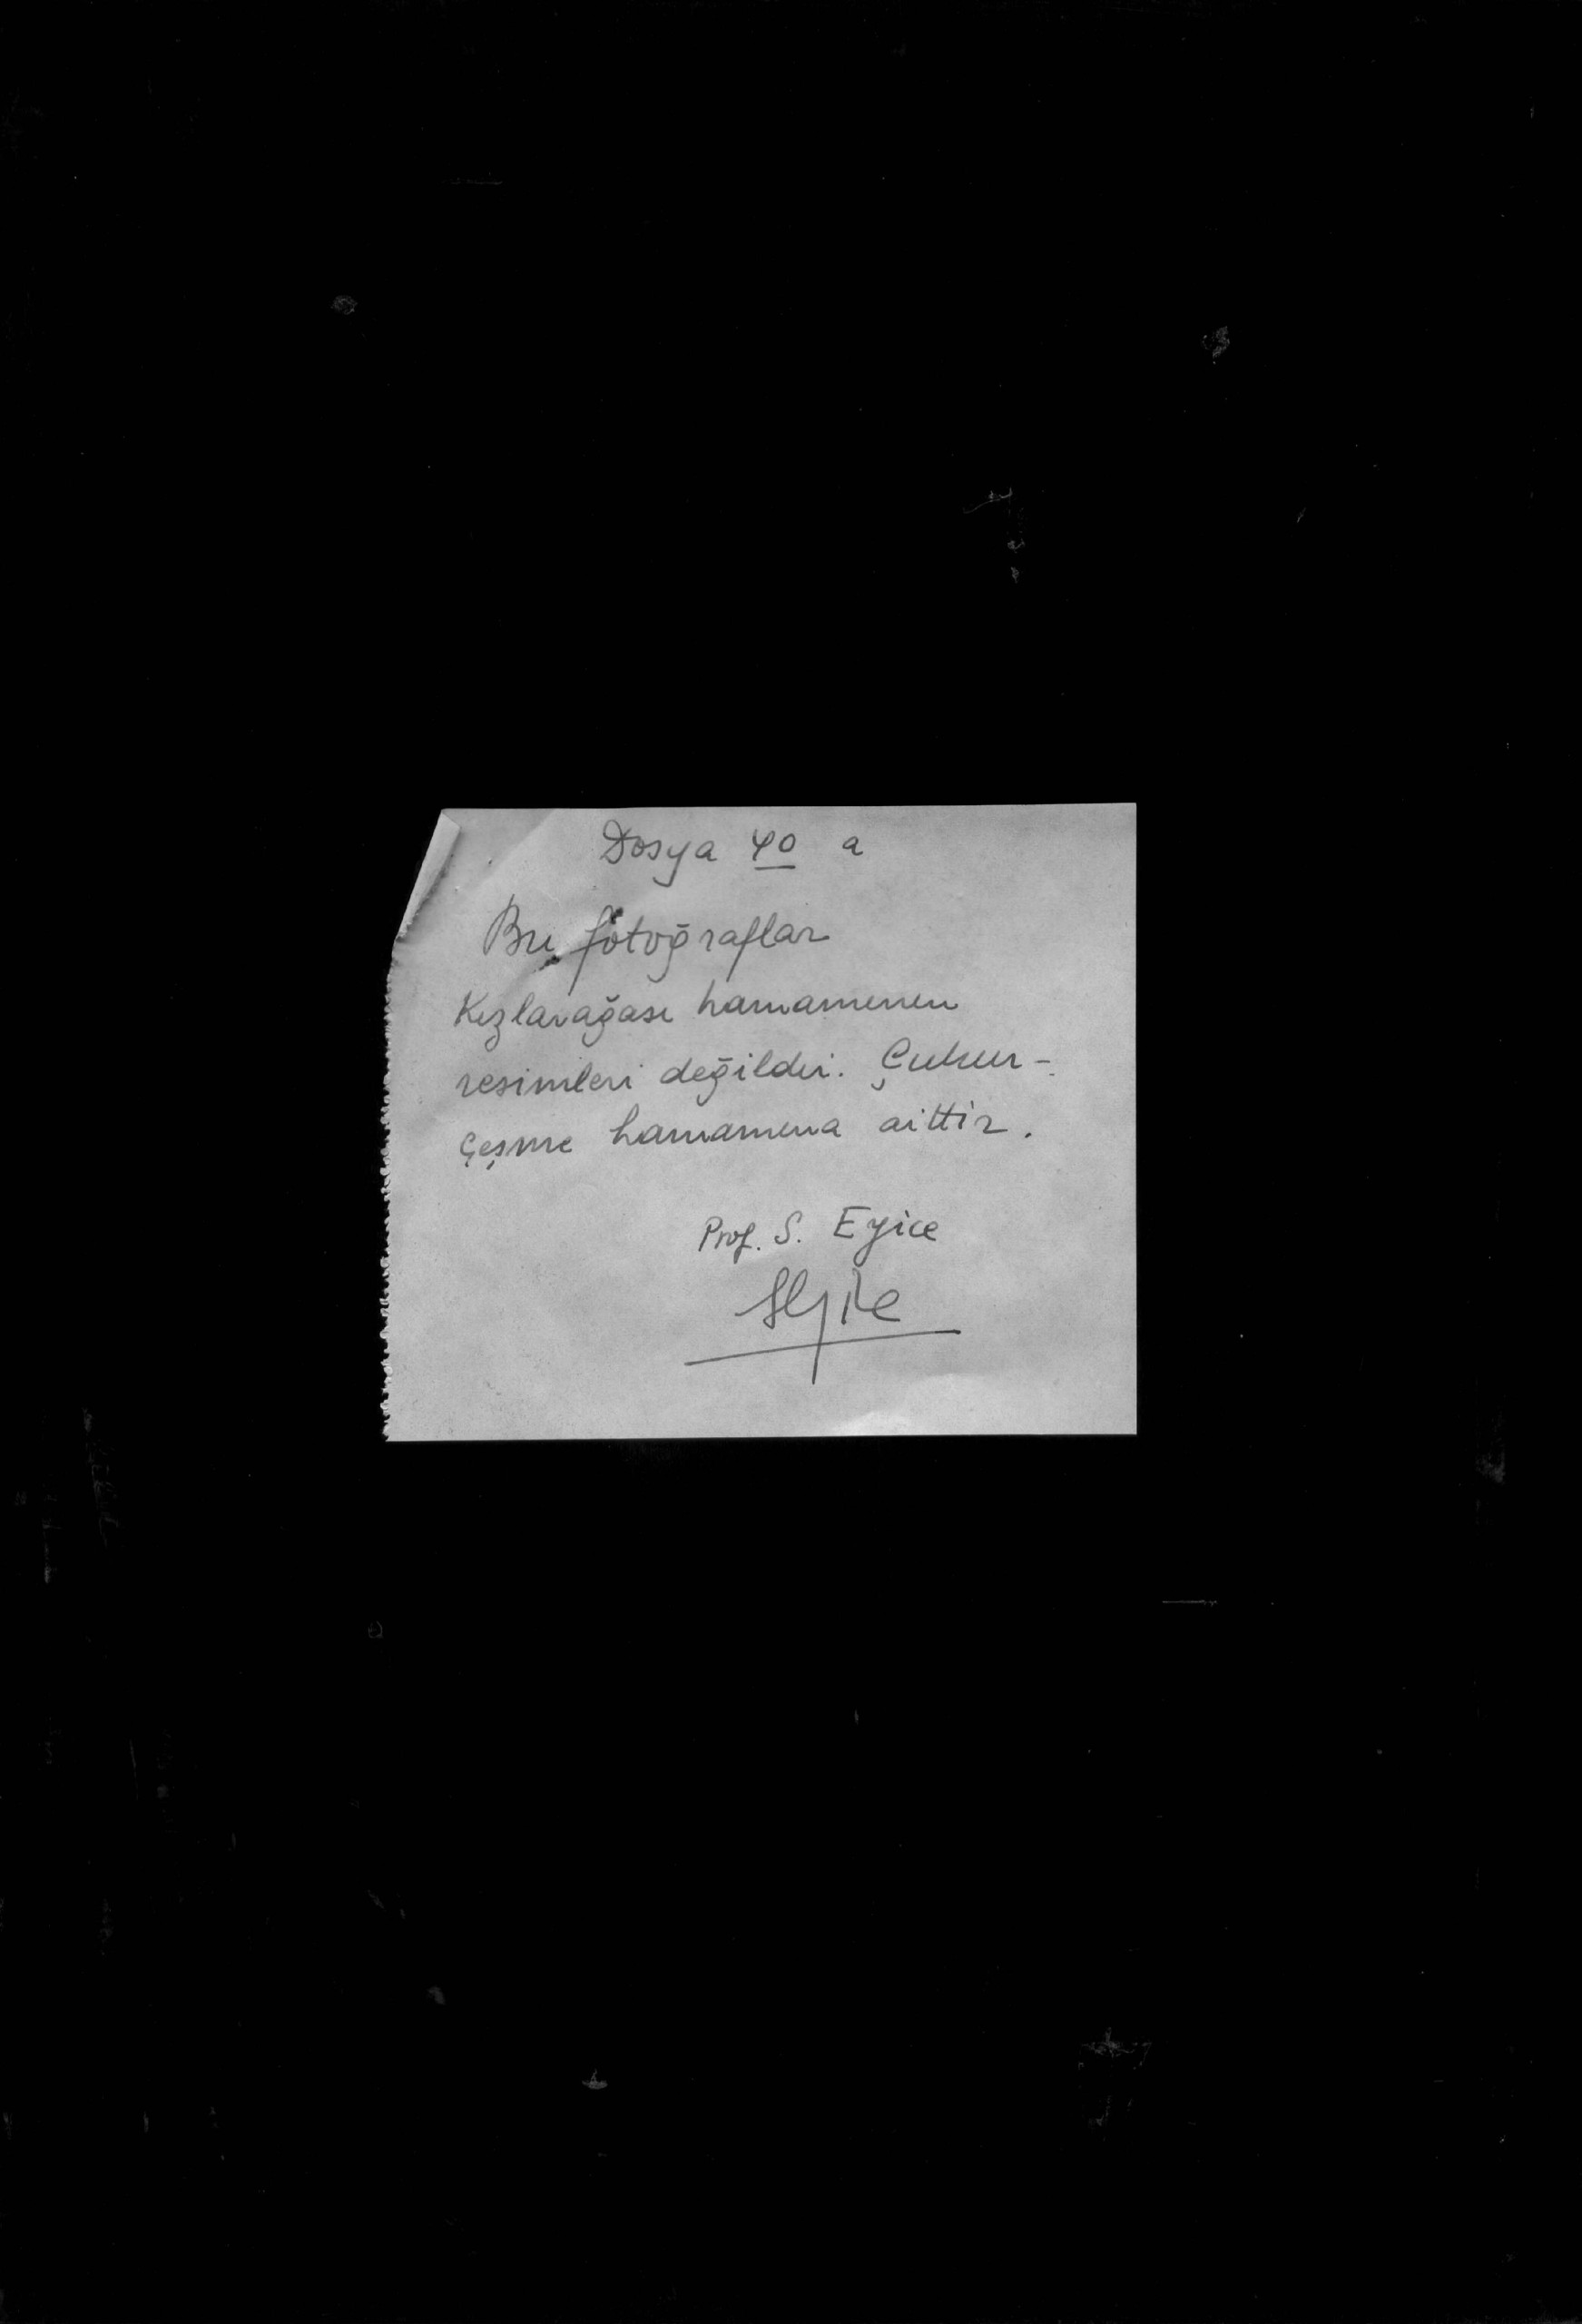 Dosya 40 a
Bu fotoğraflar
Kızlarağası hamamının
resimleri değildir. Çukur-
çeşme hamamına aittir.
Prof. S. Eyice
SEyice